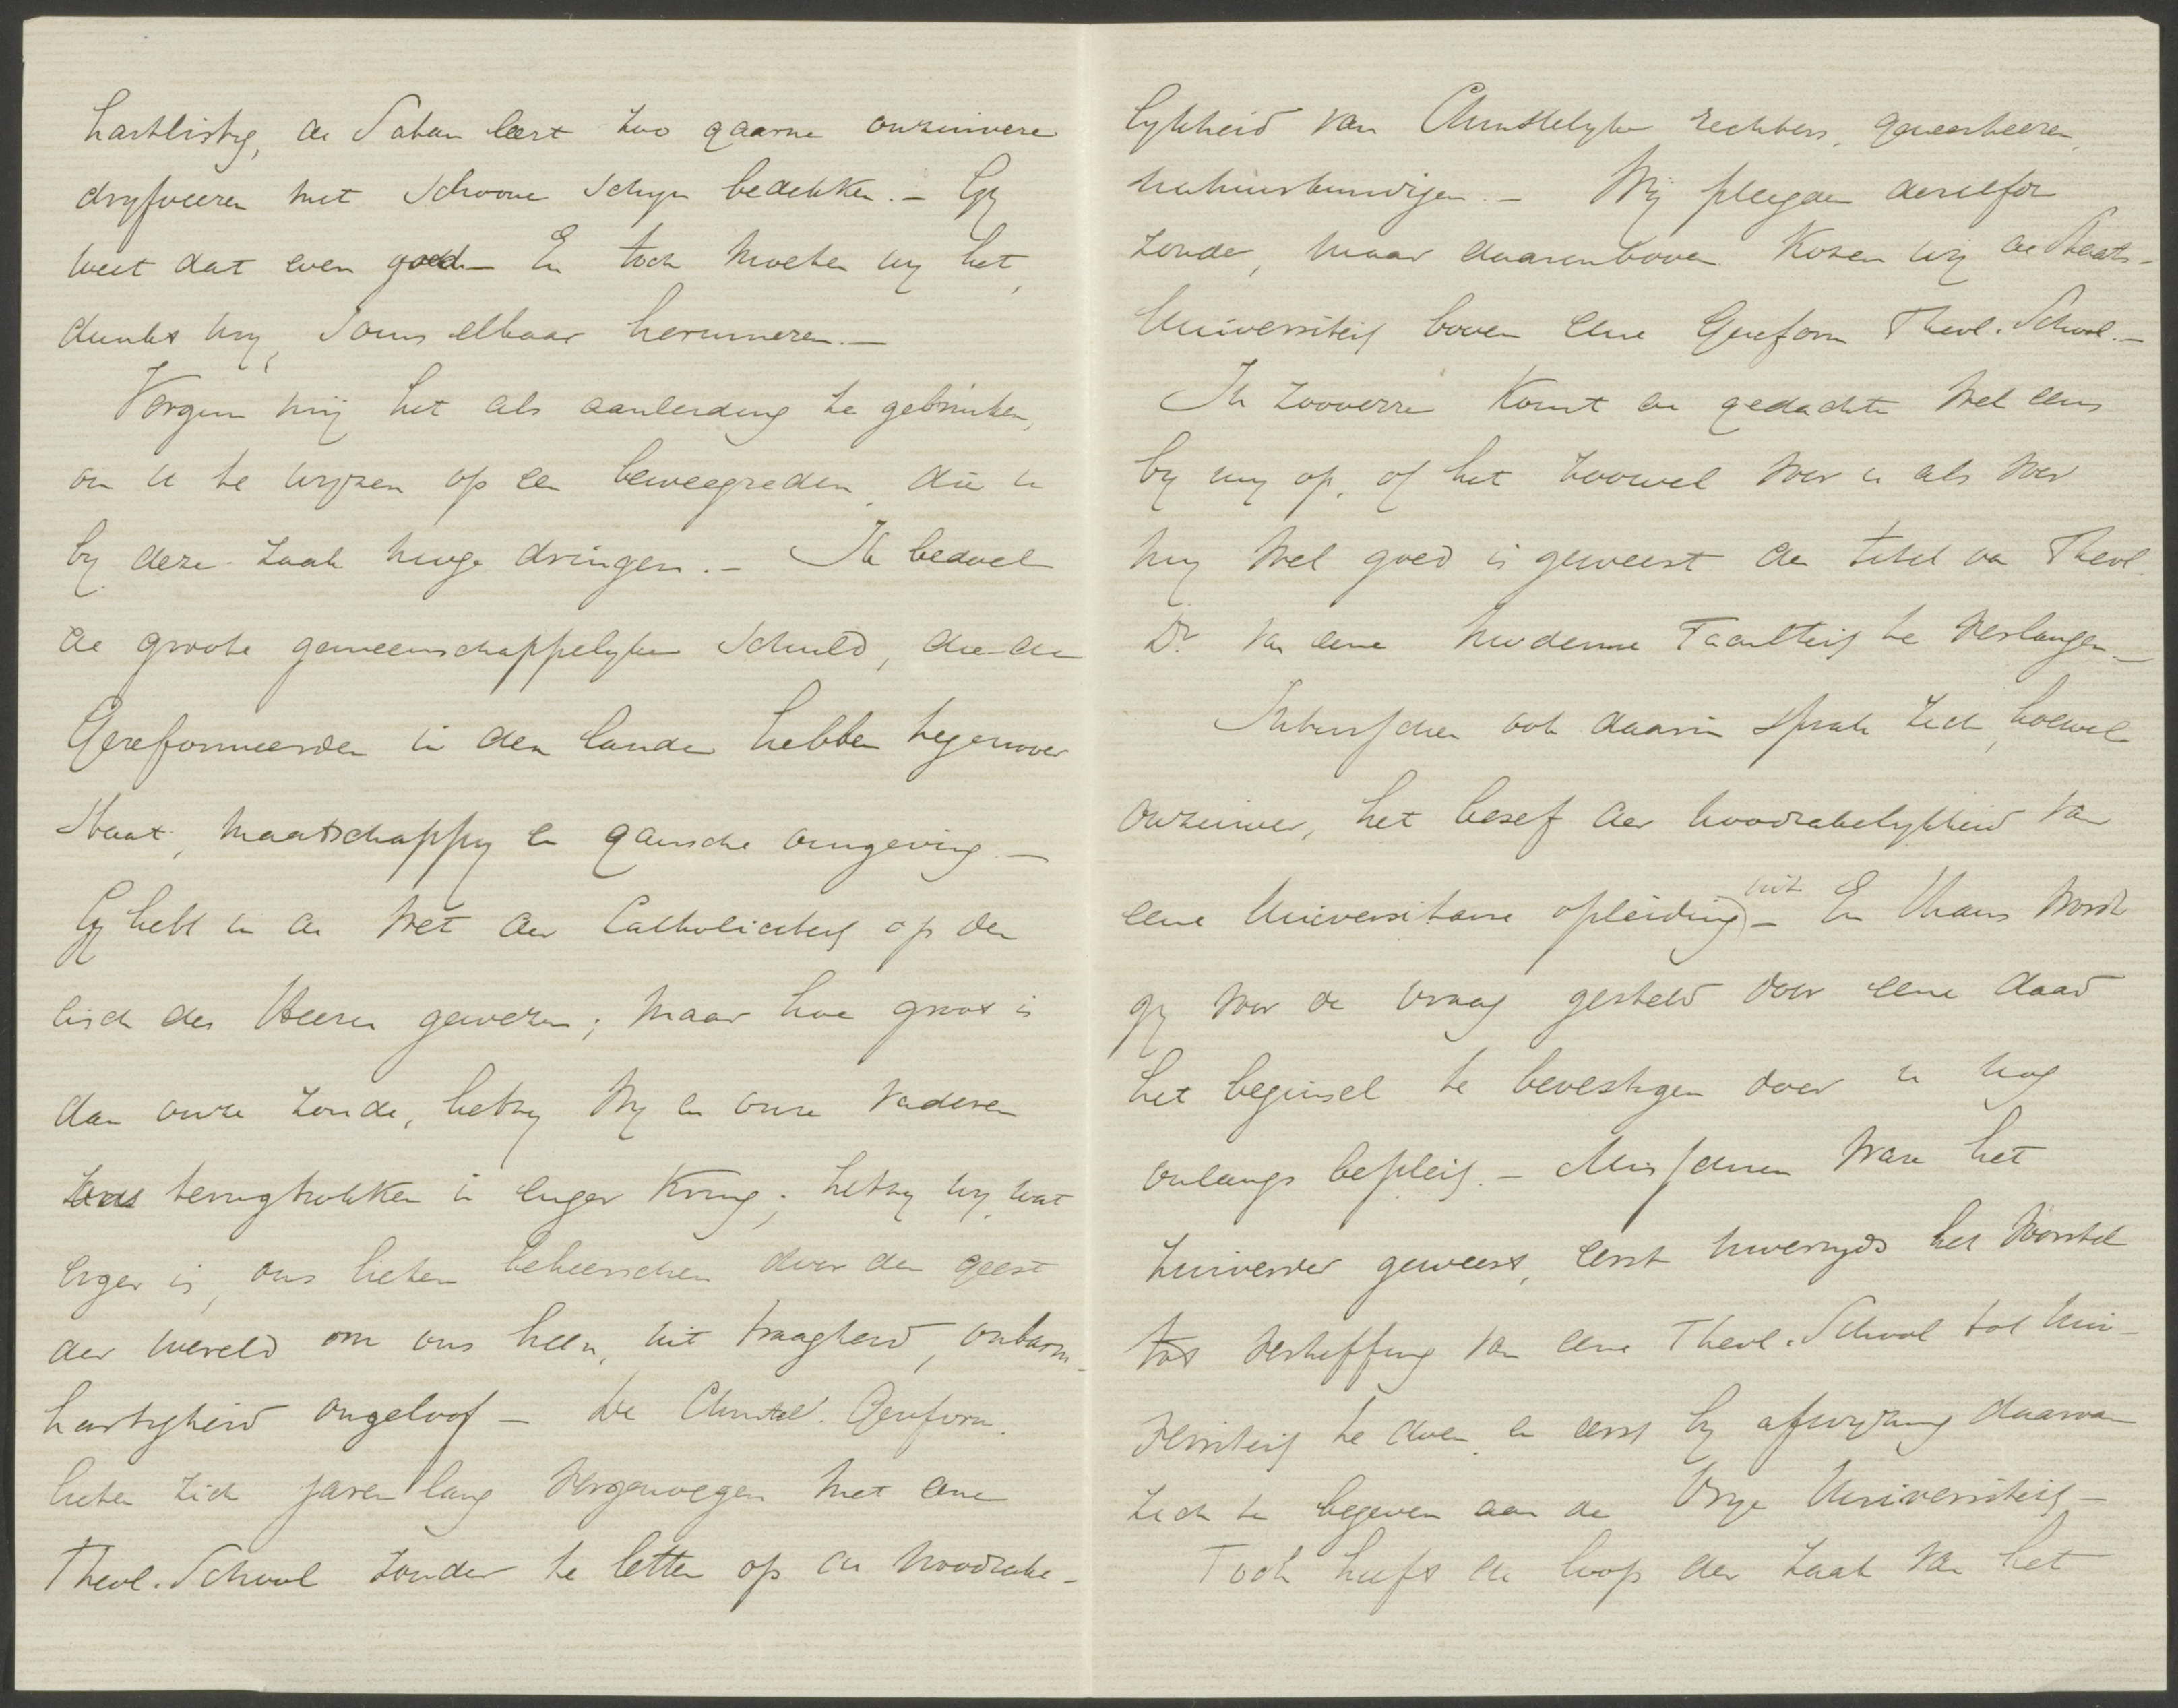 hartlistig, de Satan leert zoo gaarne onzuivere
dryfveeren met schoone schyn bedekken. – Gy
weet dat even goed – En toch moeten wy het,
dunkt my, soms elkaar herinneren. –
Vergun mij het als aanleiding te gebruiken,
om u te wyzen op een beweegreden, die u
by deze zaak moge dringen. – Ik bedoel
de groote gemeenschappelyke schuld, die de
Gereformeerden in den lande hebben tegenover
Staat, maatschappy en gansche omgeving. –
Gy hebt in de wet der Catholiciteit op den
eisch des Heeren gewezen; maar hoe groot is
dan onze zonde, hetzy wy en onze vaderen
ons terugtrokken in enger kring; hetzy wy, wat
erger is, ons lieten beheerschen door den geest
der wereld om ons heen, uit traagheid, onbarm-
hartigheid ongeloof – De Christel. Gereform.
lieten zich jaren lang vergenoegen met eene
Theol. School zonder te letten op de noodzake-
lykheid van Christelyke rechters, geneesheeren,
natuurkundigen. – Wij pleegden dezelfde
zonde, maar daarenboven kozen wij de Staats-
Universiteit boven eene Gereform Theol. School. –
In zooverre komt de gedachte wel eens
by my op, of het zoowel voor u als voor
my wel goed is geweest den titel van Theol.
Dr. van eene moderne Faculteit te verlangen –
Intusschen ook daarin sprak zich, hoewel
onzuiver, het besef der noodzakelykheid van
eene Universitaire opleiding uit – En thans wordt
gy voor de vraag gesteld door eene daad
het beginsel te bevestigen door u nog
onlangs bepleit. – Misschien ware het
zuiverder geweest, eerst uwerzyds het voorstel
tot verheffing van eene Theol. School tot Uni-
versiteit te doen en eerst by afwyzing daarvan
zich te begeven aan de Vrye Universiteit –
Toch heeft de loop der zaak van het